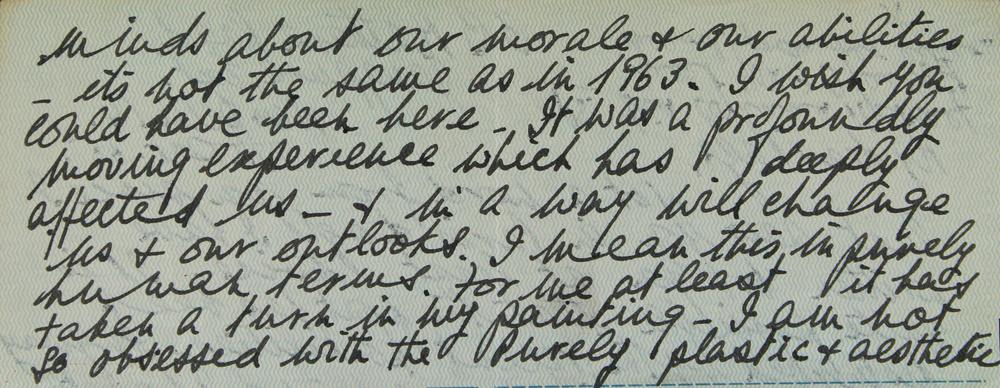 minds about our morale & our abilities
– its not the same as in 1963. I wish you
could have been here – It was a profoundly
moving experience which has deeply
affected us – & in a way will change
us & our outlooks. I mean this in purely
human terms. For me at least it has
taken a turn in my painting – I am not
so obsessed with the purely plastic & aesthetic